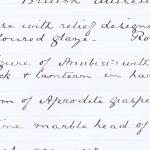 British Museum
re with relief designs
loured glaze. Ro
gure of Anubis: with
ck & lantern in ha
m of Aphrodite grasped
ine marble head of